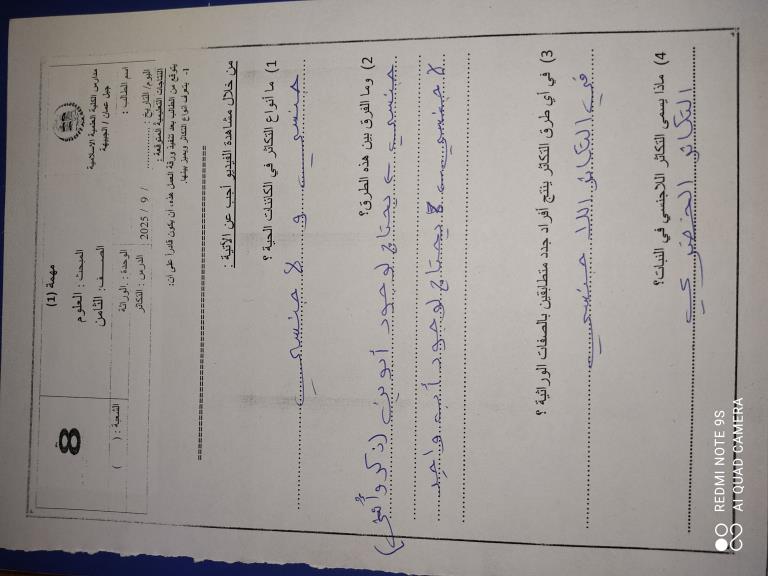 مدارس الكلية العلمية الاسلامية
جبل عمان / الجبيهة
اسم الطالب :
اليوم/ التاريخ : ............ / 9 / 2025
مهمة (1)
المبحث : العلوم
الصف: الثامن
الوحدة : الوراثة
الدرس : التكاثر
8
الشعبة : ( )
النتاجات التعليمية المتوقعة :
يتوقع من الطالب بعد تنفيذ ورقة العمل هذه، أن يكون قادرا على ان:
1- يتعرف أنواع التكاثر ويميز بينها.
من خلال مشاهدة الفيديو أجب عن الآتية :
1) ما أنواع التكاثر في الكائنات الحية ؟
جنسي و لا جنسي
2) وما الفرق بين هذه الطرق؟
جنسي ← يحتاج لوجود أبوين (ذكر وأنثى)
لا جنسي ← لا يحتاج لوجود أب واحد
3) في أي طرق التكاثر ينتج أفراد جدد متطابقين بالصفات الوراثية ؟
في التكاثر اللا جنسي
4) ماذا يسمى التكاثر اللاجنسي في النبات؟
التكاثر الخضري
REDMI NOTE 9S
AI QUAD CAMERA